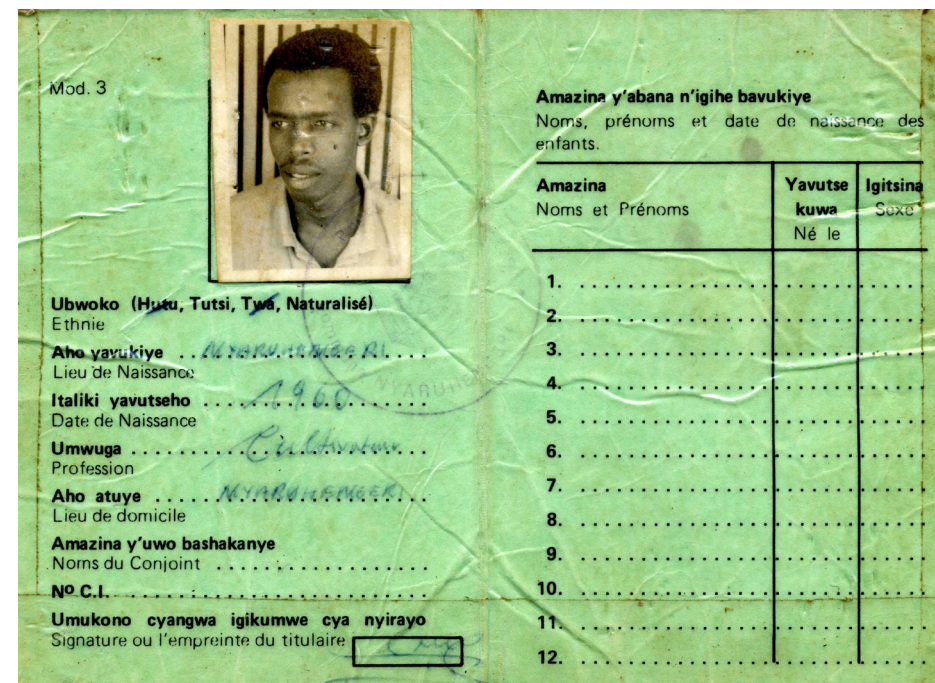 Mod. 3
Ubwoko (Hutu, Tutsi, Twa, Naturalisé)
Ethnie
Aho yavukiye NYARUHENGERI
Lieu de Naissance
Italiki yavutseho 1960
Date de Naissance
Umwuga Cultivateur
Profession
Aho atuye NYARUHENGERI
Lieu de domicile
Amazina y'uwo bashakanye
Noms du Conjoint
Nº C.I.
Umukono cyangwa igikumwe cya nyirayo
Signature ou l'empreinte du titulaire
Amazina y'abana n'igihe bavukiye
Noms, prénoms et date de naissance des
enfants.
Amazina
Noms et Prénoms
Yavutse
kuwa
Né le
Igitsina
Sexe
1.
2.
3.
4.
5.
6.
7.
8.
9.
10.
11.
12.